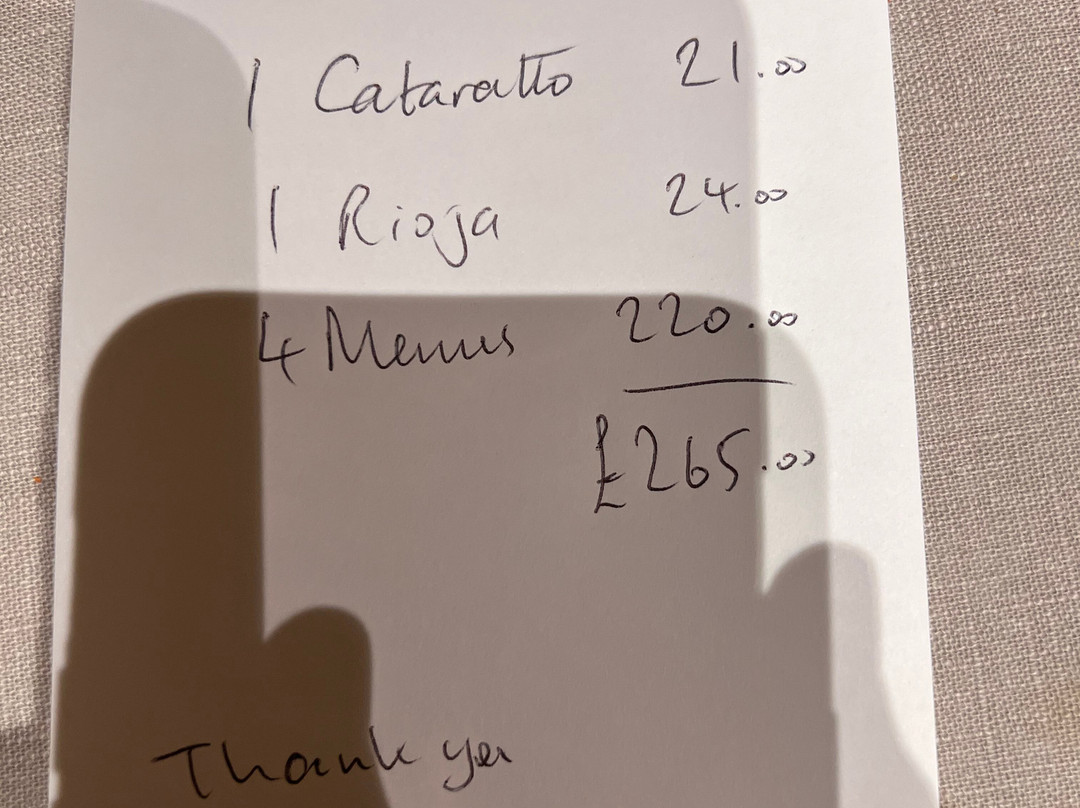 1 Cataratto 21.00
1 Rioja 24.00
4 Menus 220.00
£265.00
Thank you